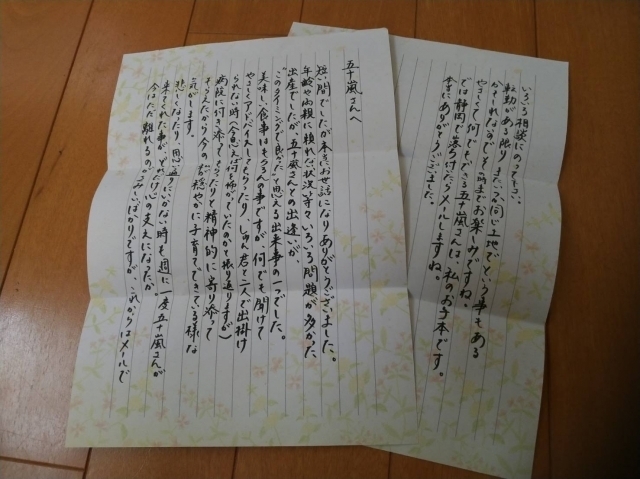 五十嵐さんへ
短い間でしたが本当にお世話になりありがとうございました。
年齢や両親に頼れない状況等々いろいろ問題が多かった
出産でしたが、五十嵐さんとの出逢いが、
"このタイミングで良かった"と思える出来事の一つでした。
美味しい食事はもちろんの事ですが、何でも聞けて
やさしくアドバイスしてもらったり、しゅん君と二人で出掛け
られない時(今思えば何を怖がっていたのかと振り返りますが)
病院に付き添ってもらったりと精神的に寄り添って
もらえたから今の穏やかに子育てできている様な
気がします。
悲しくなったり、思い通りにいかない時も週に一度五十嵐さんが
来てくれた事が、どれだけ心の支えになったか。
今はただ離れるのがさみしいばかりですが、これからはメールで
いろいろ相談にのって下さい。
転勤がある限り、またいつか同じ土地でという事もある
かもしれないので、その時までお楽しみですね。
やさしくて何でもできる五十嵐さんは、私のお手本です。
では静岡で落ちついたらメールしますね。
本当にありがとうございました。